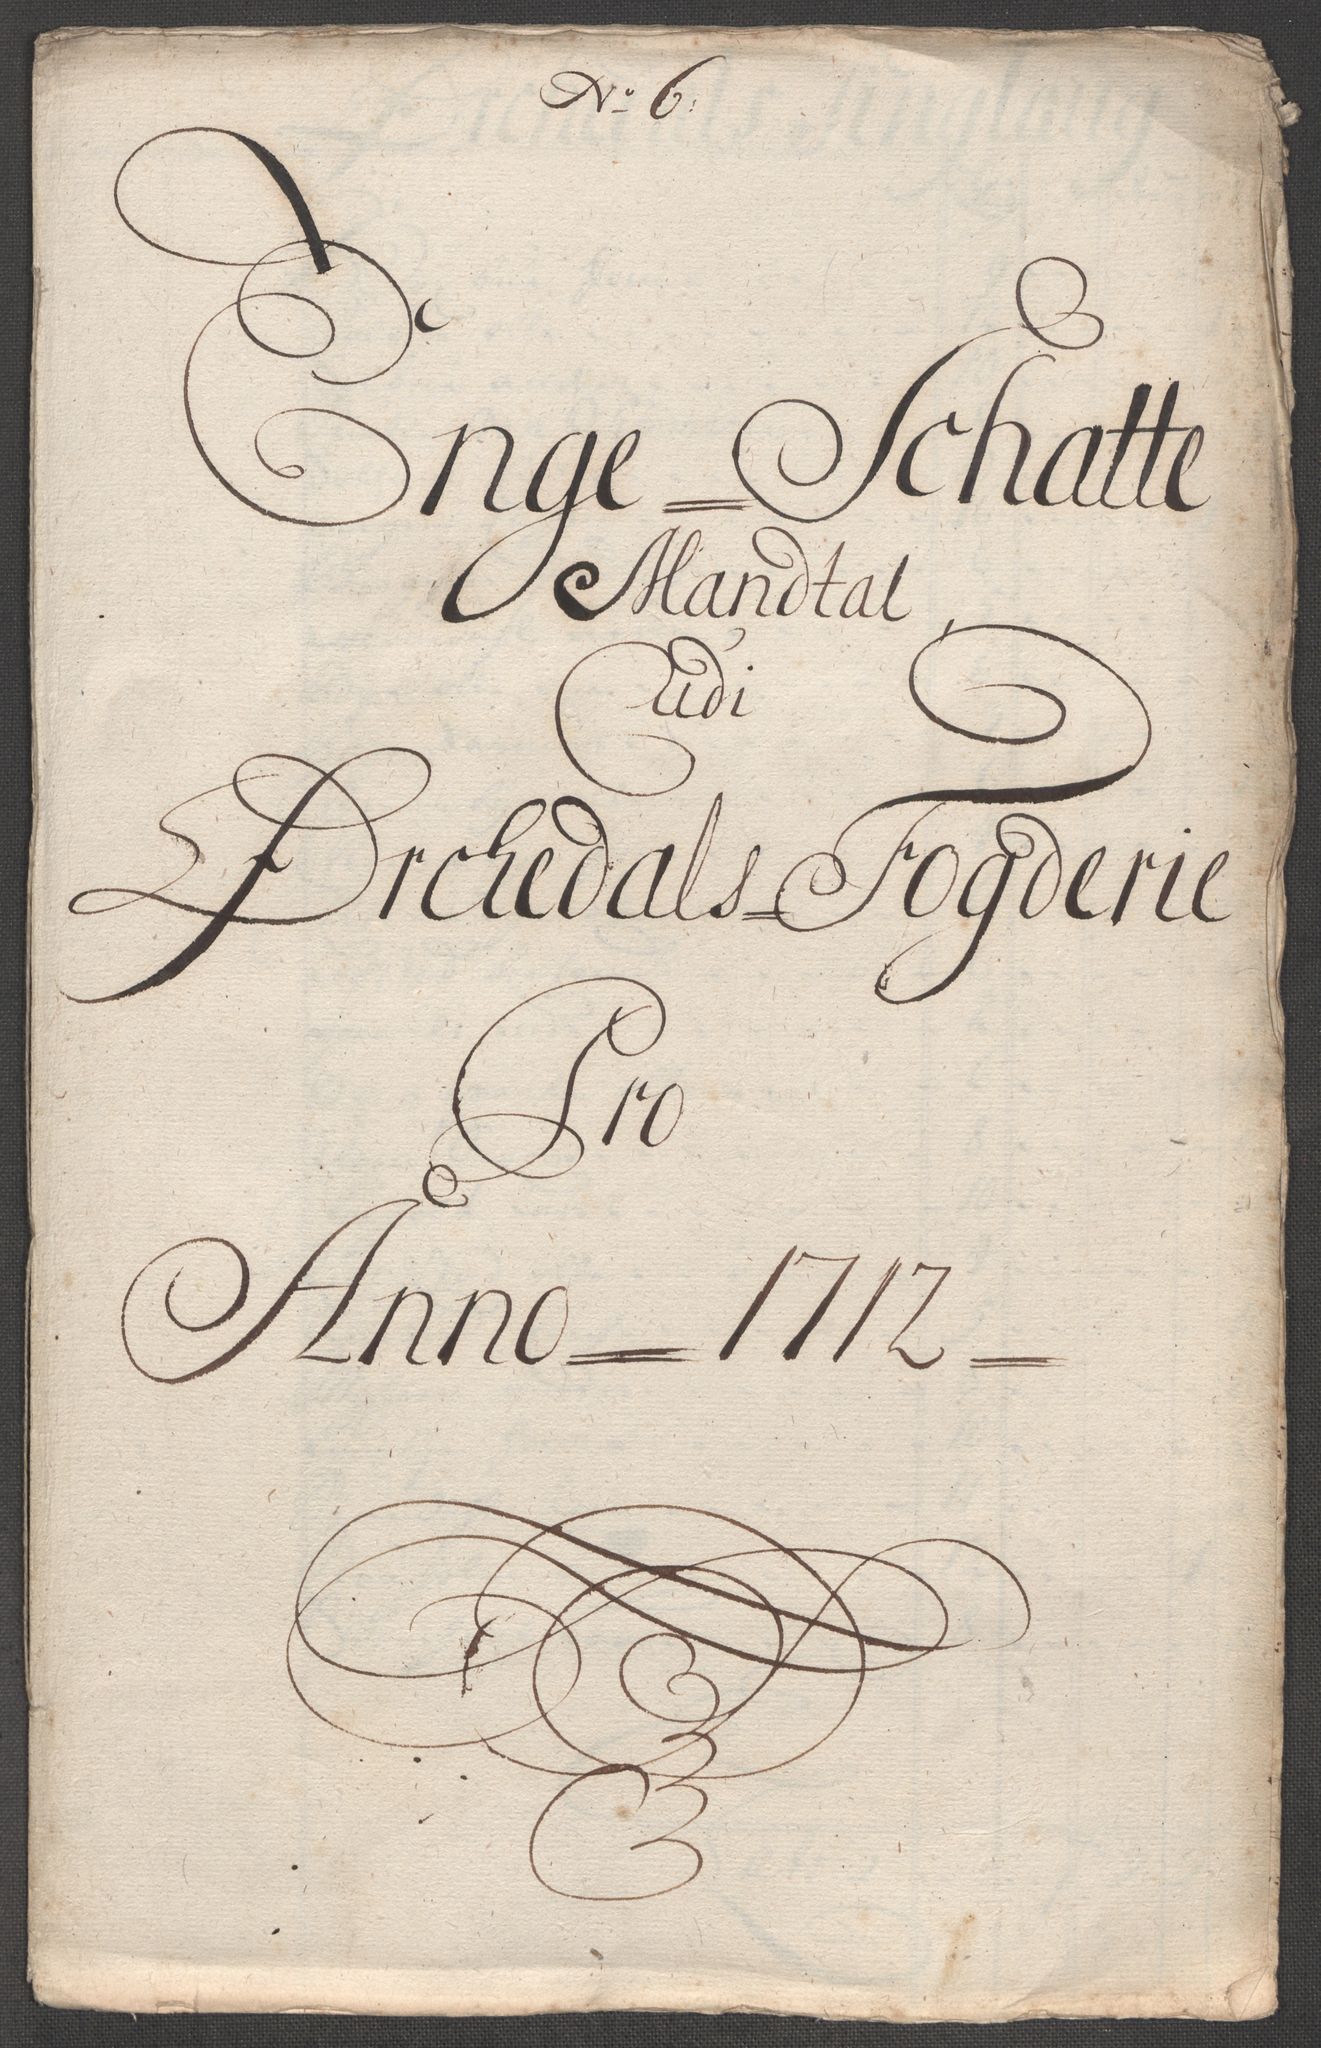 No 6:
Enge = Schatte
Mandtal
Udi
Orchedals = Fogderie
Pro
Anno = 1712 =